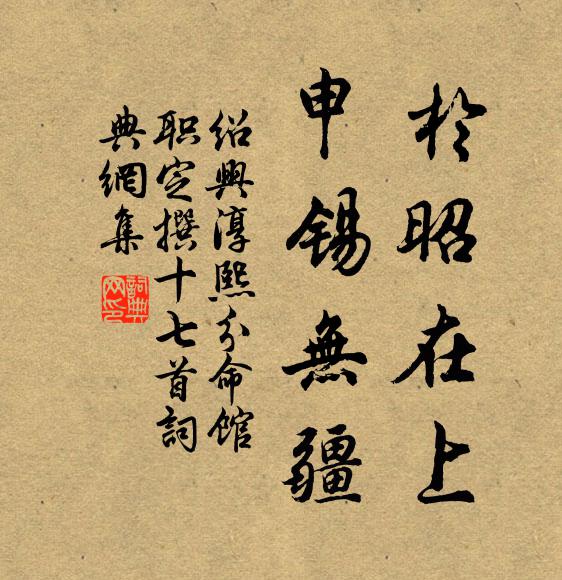 於昭在上
申锡無疆
绍興淳熙分命馆
职定撰十七首詞
典網集
詞典
网印